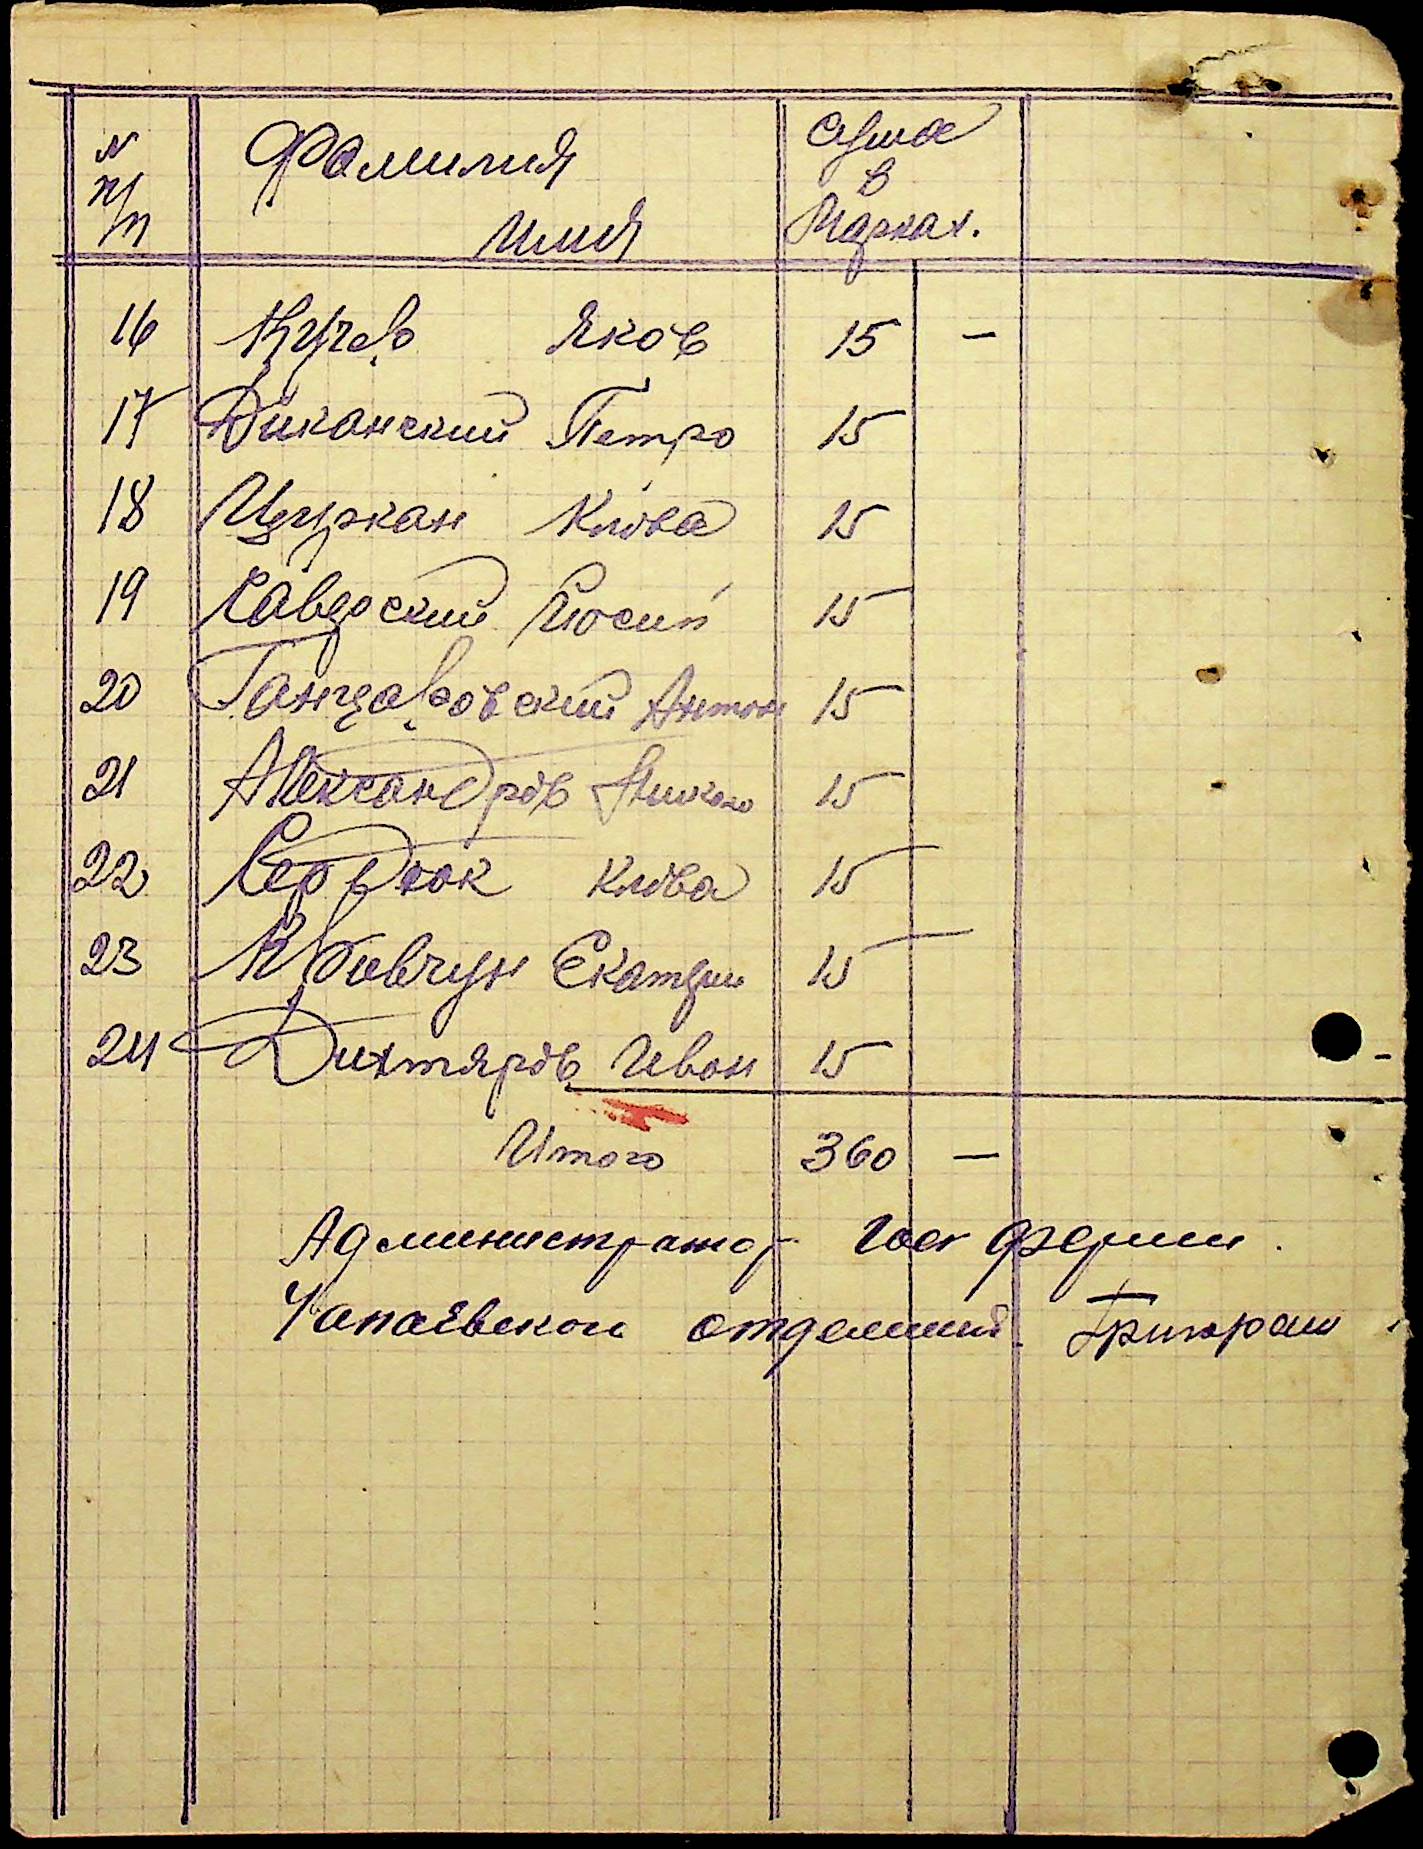 N п/п Фамилия Имя Сума в Марках.
16 Кучер Яков 15 —
17 Диканский Петро 15
18 Цуркан Клова 15
19 Савдоский Йосип 15
20 Антон 15
21 Александров Никола 15
22 Сердюк Клова 15
23 Екатери 15
24 Дихтяров Иван 15
Итого 360 —
Администратор Гос фермы.
Чапаевской отделения Григораш